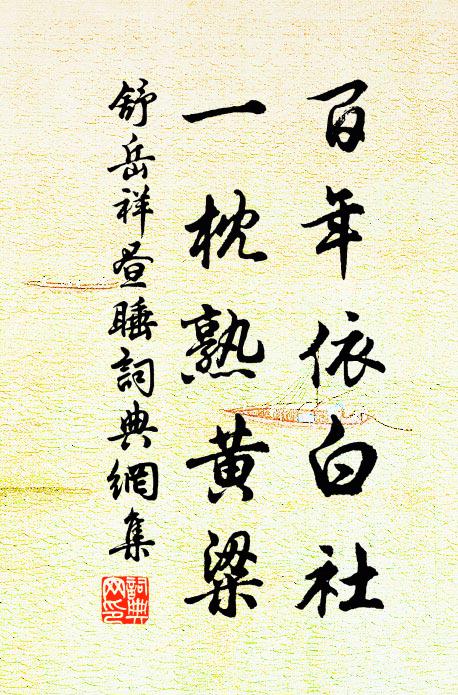 百年依白社
一枕熟黄粱
舒岳祥昼睡詞典網集
詞典網印